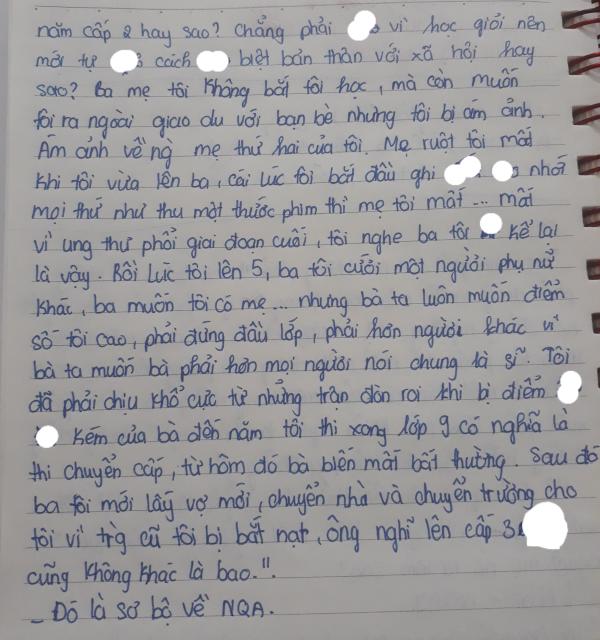 năm cấp 2 hay sao? Chẳng phải vì học giỏi nên
mới tự cách biệt bản thân với xã hội hay
sao? Ba mẹ tôi không bắt tôi học, mà còn muốn
tôi ra ngoài giao du với bạn bè nhưng tôi bị ám ảnh.
Ám ảnh về ng mẹ thứ hai của tôi. Mẹ ruột tôi mất
khi tôi vừa lên ba, cái lúc tôi bắt đầu ghi nhớ
mọi thứ như thu một thước phim thì mẹ tôi mất ... mất
vì ung thư phổi giai đoạn cuối, tôi nghe ba tôi kể lại
là vậy. Rồi lúc tôi lên 5, ba tôi cưới một người phụ nữ
khác, ba muốn tôi có mẹ ... nhưng bà ta luôn muốn điểm
số tôi cao, phải đứng đầu lớp, phải hơn người khác vì
bà ta muốn bà phải hơn mọi người nói chung là sĩ. Tôi
đã phải chịu khổ cực từ những trận đòn roi khi bị điểm
kém của bà đến năm tôi thi xong lớp 9 có nghĩa là
thi chuyển cấp, từ hôm đó bà biến mất bất thường. Sau đó
ba tôi mới lấy vợ mới, chuyển nhà và chuyển trường cho
tôi vì trg cũ tôi bị bắt nạt, ông nghĩ lên cấp 3
cũng không khác là bao.".
- Đó là sơ bộ về NQA.